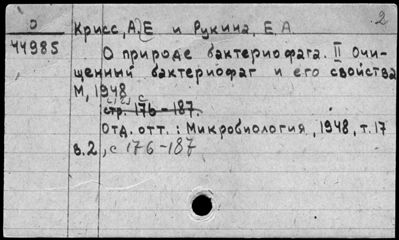 2
О Крисс, А.Е и Рукина, Е А.
44985
О природе бактериофага. II Очи-
щенный бактериофаг и его свойства
М, 1948
стр. 176-187.
Отд. отт.: Микробиология, 1948, т.17
в.2, с 176-187